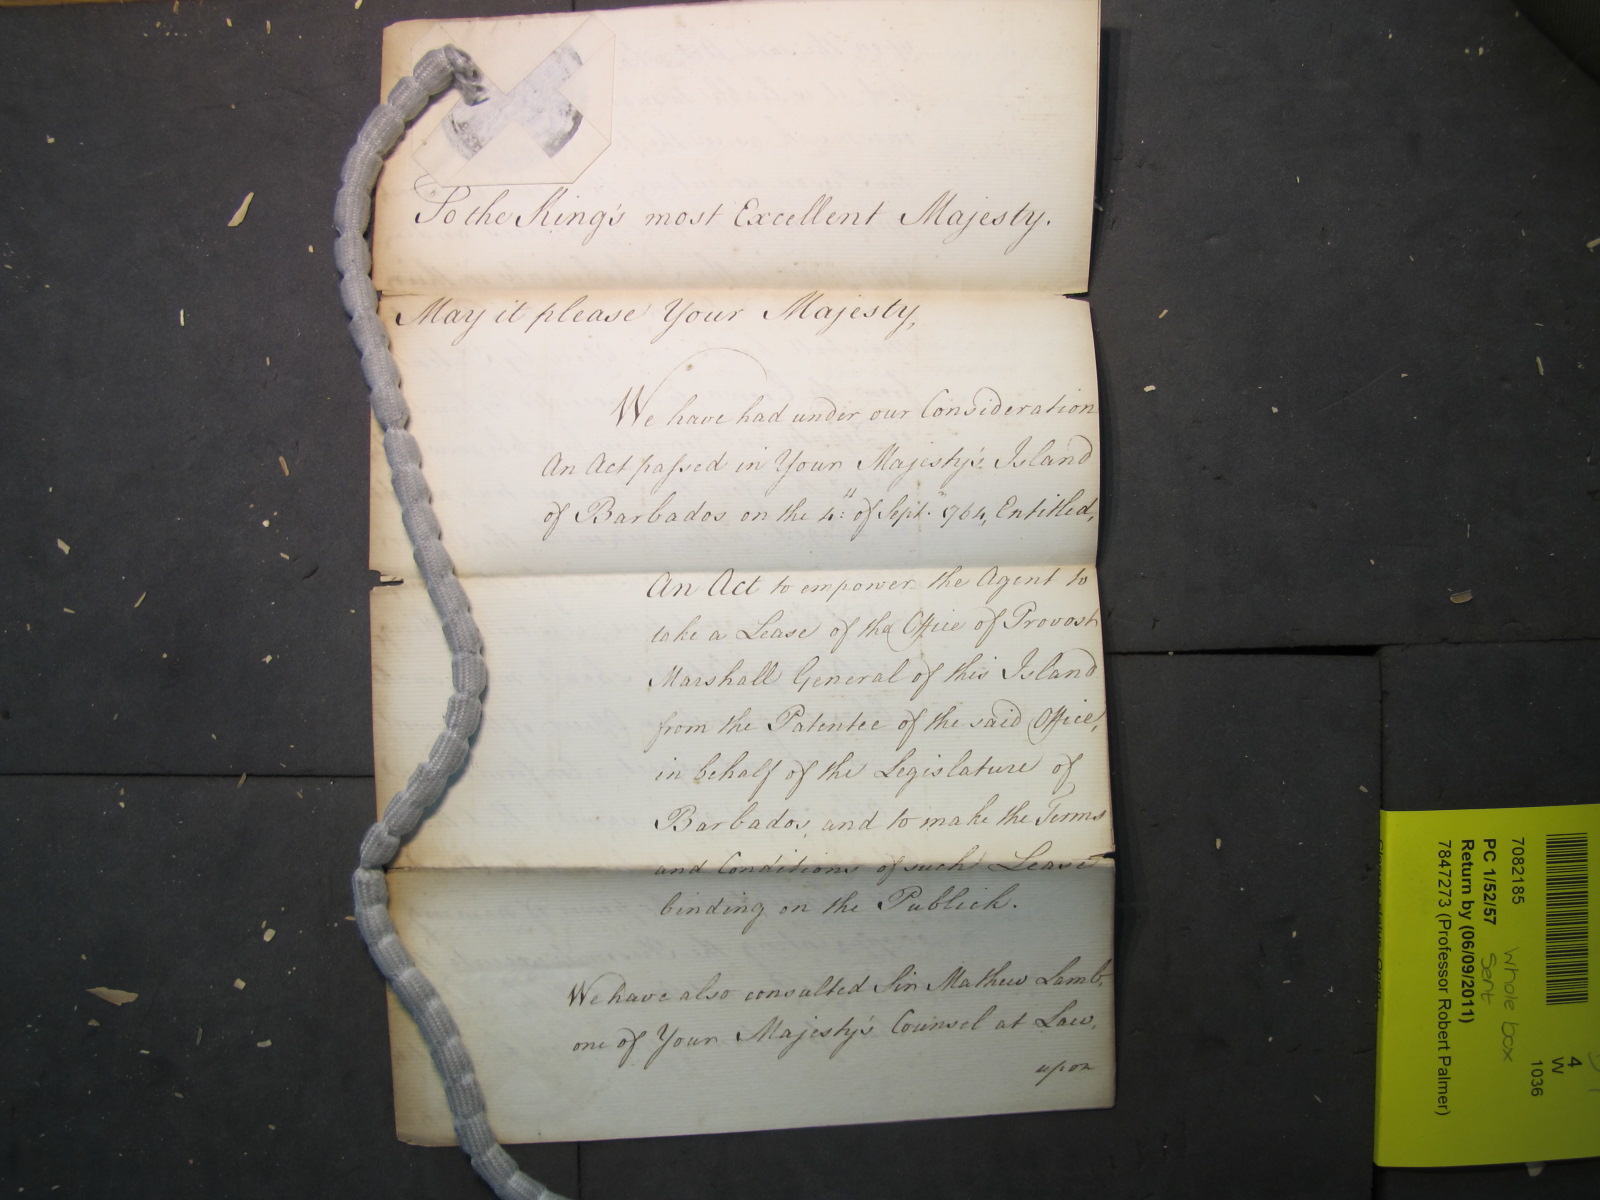 To the King's most Excellent Majesty.
May it please Your Majesty,
We have had under our Consideration
An Act passed in Your Majesty's Island
of Barbados on the 4:th of Sept.r 1764, Entitled,
An Act to empower the Agent to
take a Lease of the Office of Provost
Marshall General of this Island
from the Patentee of the said Office,
in behalf of the Legislature of
Barbados, and to make the Terms
and Conditions of such Lease
binding on the Publick.
We have also consulted Sir Mathew Lamb,
one of Your Majesty's Counsel at Law,
upon
4
W
1036
7082185
whole box
PC 1/52/57
Sent
Return by (06/09/2011)
7847273 (Professor Robert Palmer)